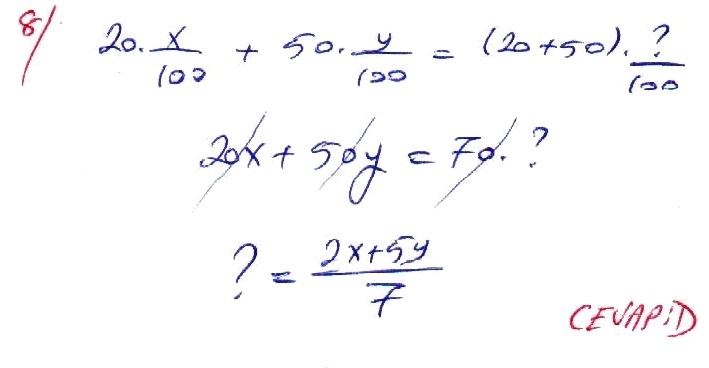 8/ 20. x/100 + 50. y/100 = (20+50). ?/100
20x + 50y = 70. ?
? = 2x+5y/7
CEVAP:D